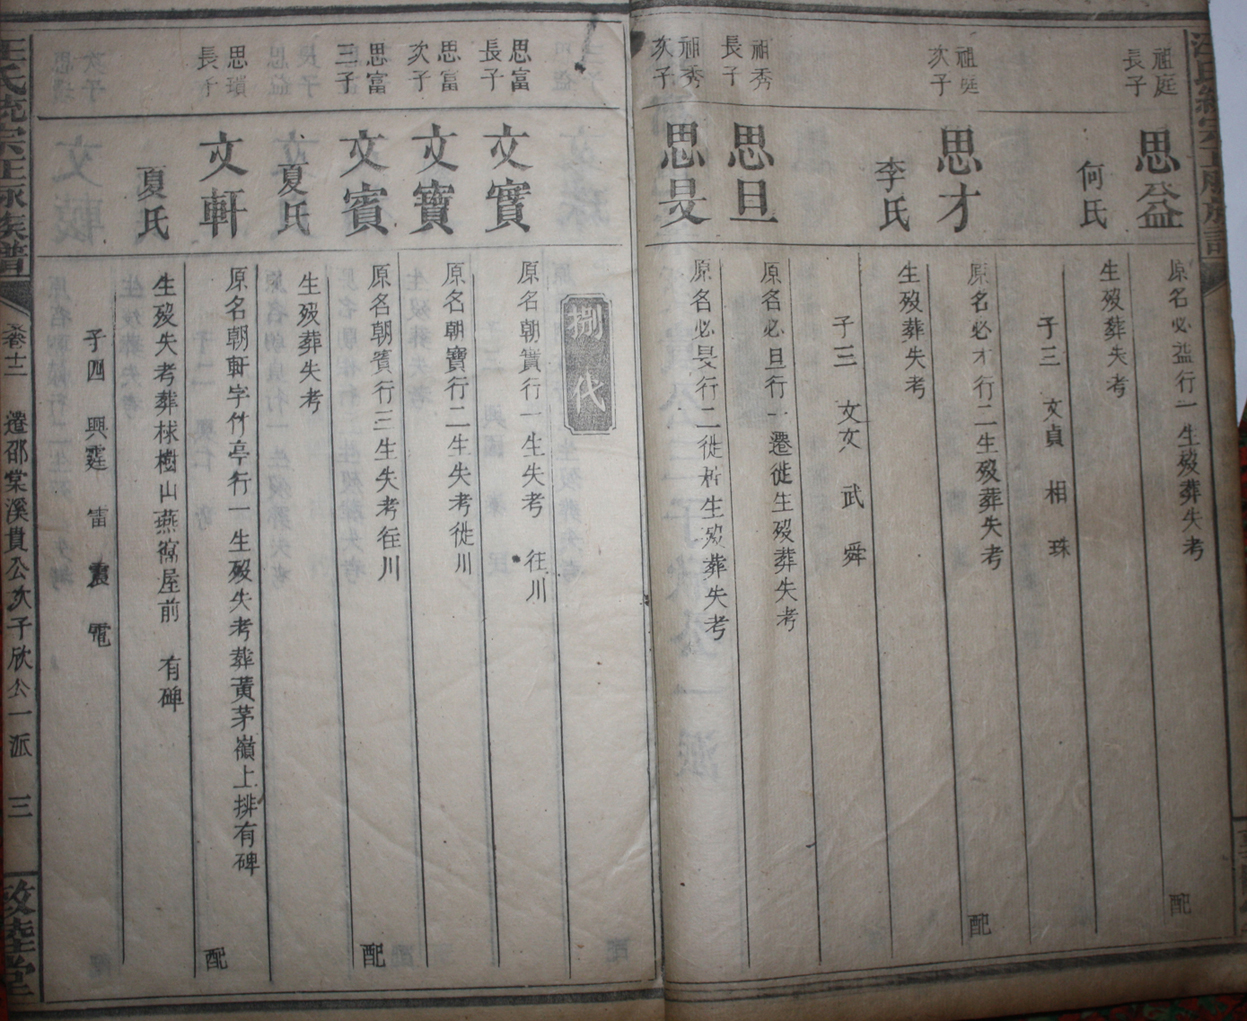 祖庭長子
思益
原名必益行一生殁葬失考
配
何氏
生殁葬失考
子三 文貞 相 珠
祖庭次子
思才
原名必才行二生殁葬失考
配
李氏
生殁葬失考
子三 文文 武 舜
祖秀長子
思旦
原名必旦行一遷徙生殁葬失考
祖秀次子
思旻
原名必旻行二徙析生殁葬失考
捌代
思富長子
文實
原名朝實行一生失考 徃川
思富次子
文寶
原名朝寶行二生失考徙川
思富三子
文賓
原名朝賓行三生失考徃川
配
夏氏
生殁葬失考
思瓚長子
文軒
原名朝軒字竹亭行一生殁失考葬黃茅嶺上排有碑
配
夏氏
生殁失考葬樹山燕窩屋前 有碑
子四 興霆 雷 震 電
汪氏統宗正脉族譜
卷廿二
遷邵棠溪貫公次子欣公一派 三
敦睦堂